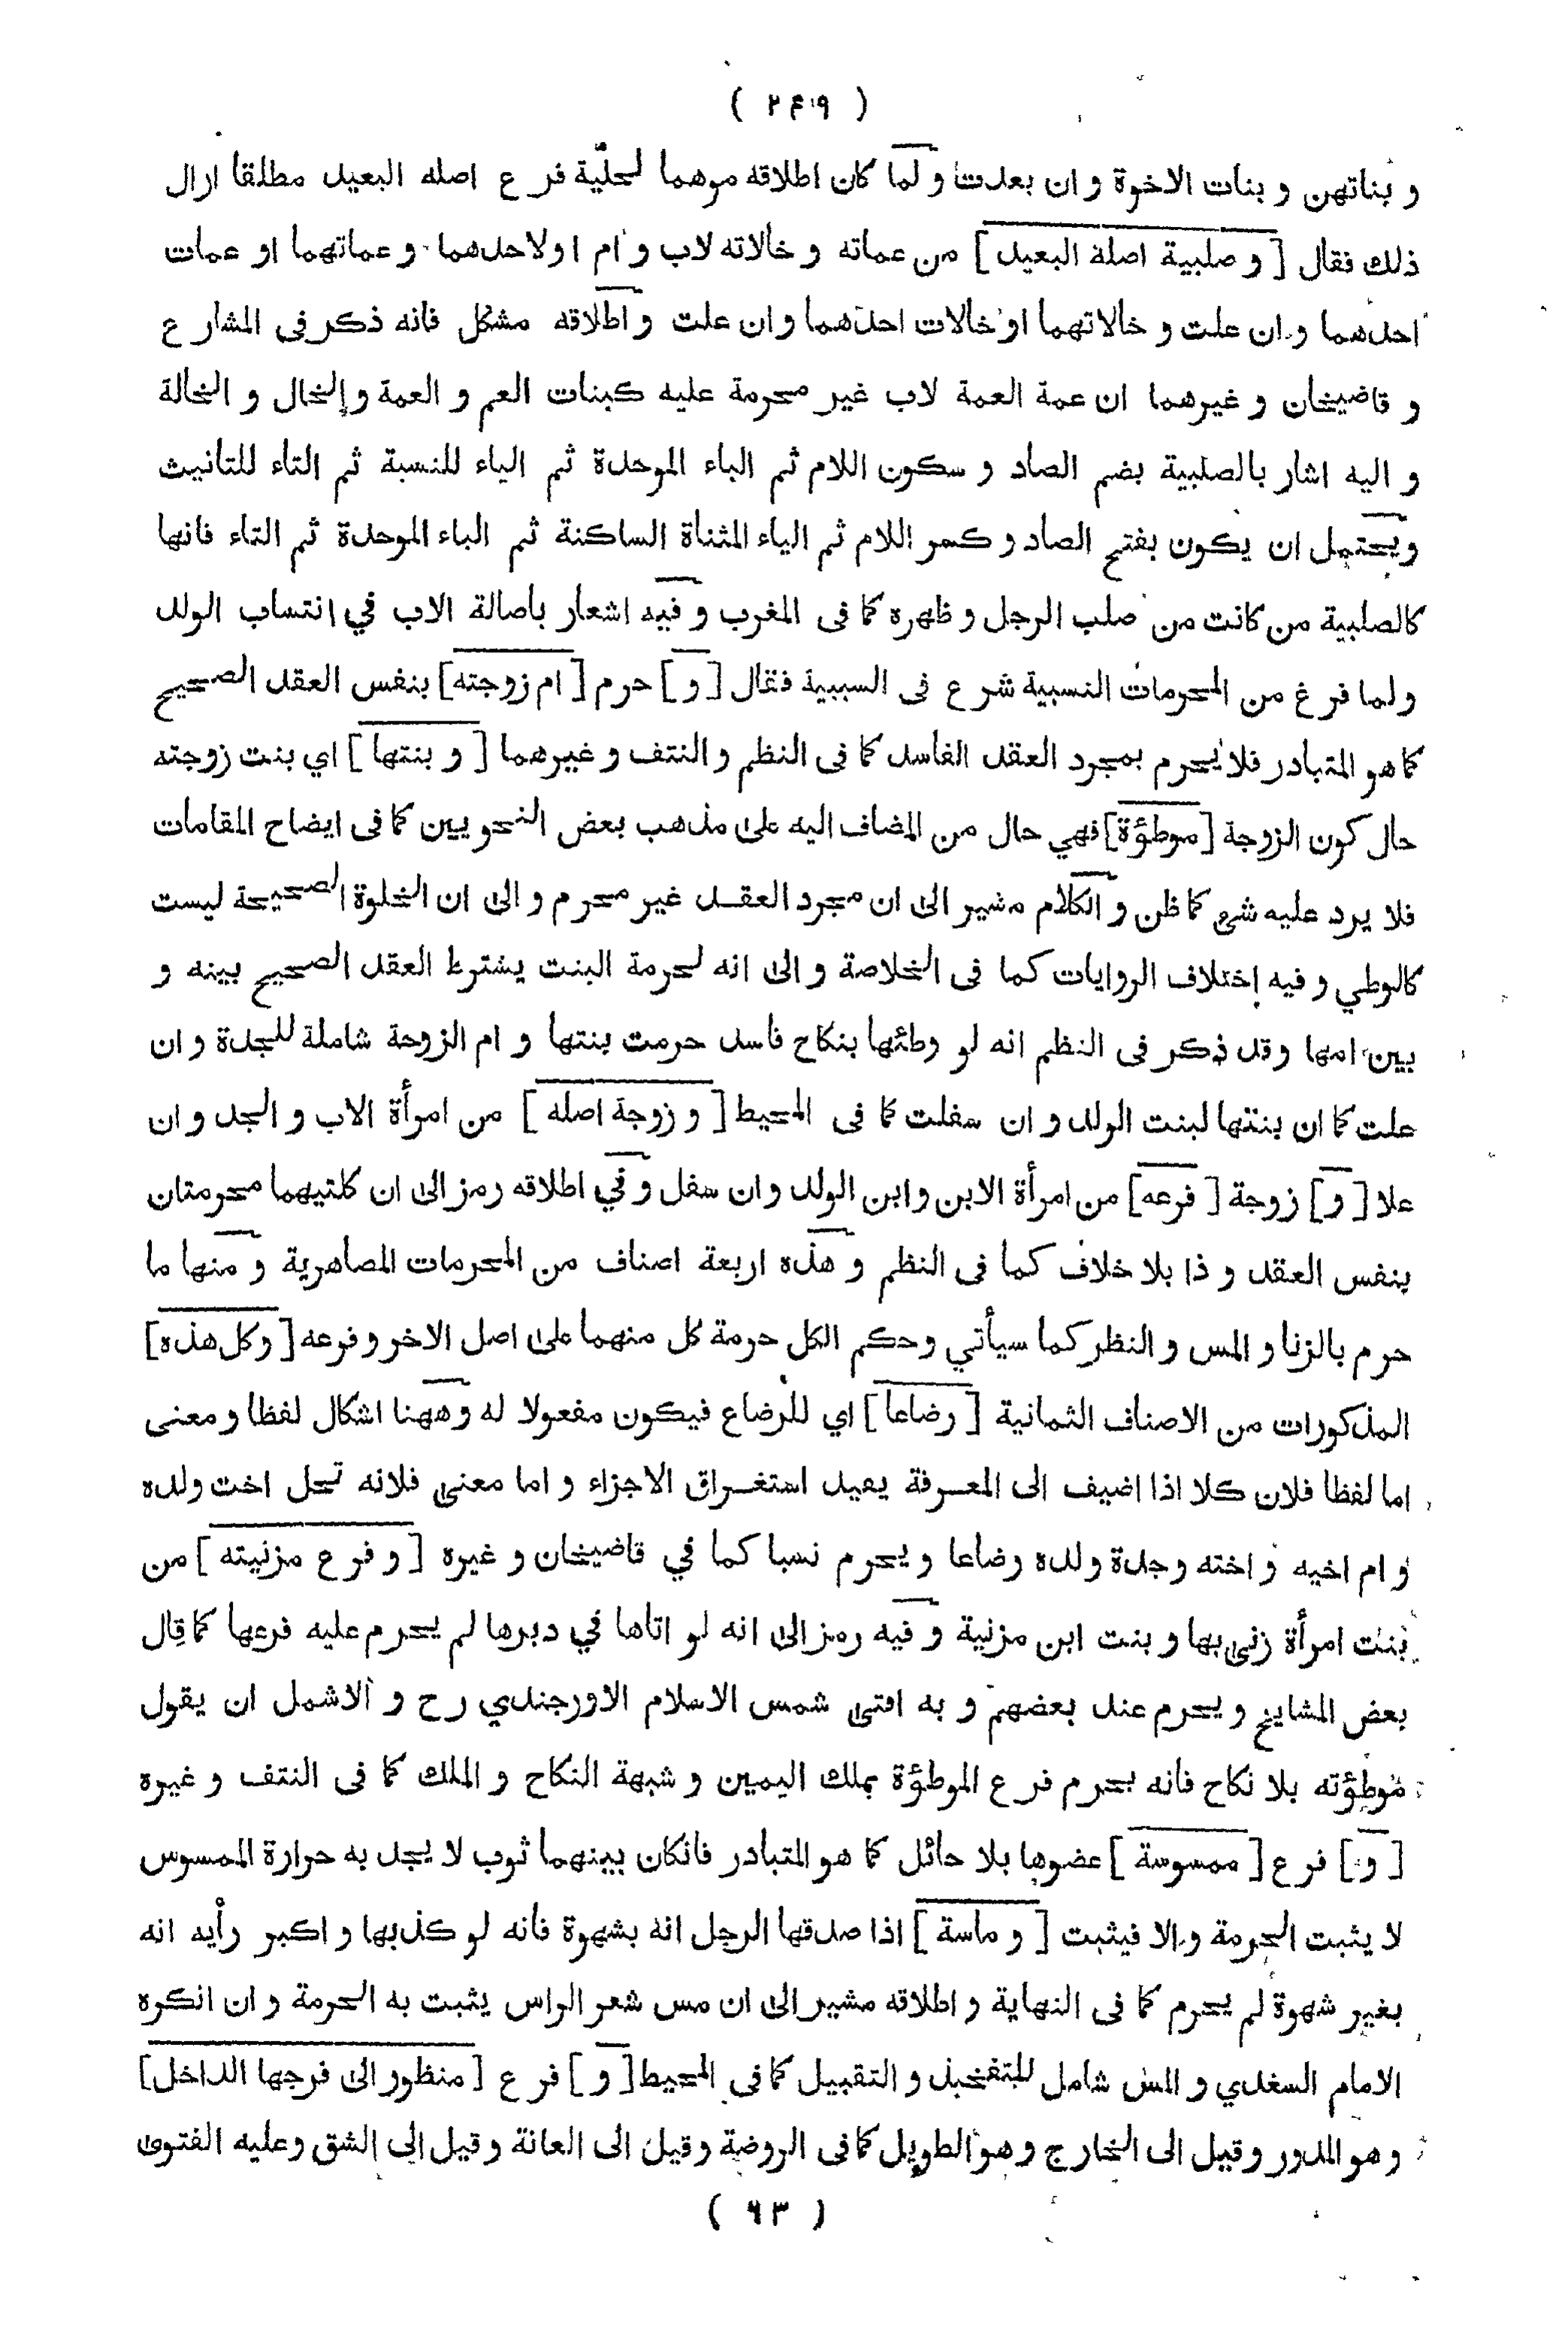 ( ٢٤٩ )
و بناتهن و بنات الاخوة و ان بعدت و لما كان اطلاقه موهما لحلّية فرع اصله البعيد مطلقا ازال
ذلك فقال [ و صلبية اصله البعيد ] من عماته و خالاته لاب و ام او لاحدهما و عماتهما او عمات
احدهما و ان علت و خالاتهما او خالات احدهما و ان علت و اطلاقه مشكل فانه ذكر فى المشارع
و قاضيخان و غيرهما ان عمة العمة لاب غير محرمة عليه كبنات العم و العمة و الخال و الخالة
و اليه اشار بالصلبية بضم الصاد و سكون اللام ثم الباء الموحدة ثم الياء للنسبة ثم التاء للتانيث
و يحتمل ان يكون بفتح الصاد و كسر اللام ثم الياء المثناة الساكنة ثم الباء الموحدة ثم التاء فانها
كالصلبية من كانت من صلب الرجل و ظهره كما فى المغرب و فيه اشعار باصالة الاب في انتساب الولد
و لما فرغ من المحرمات النسبية شرع فى السببية فقال [ و ] حرم [ ام زوجته ] بنفس العقد الصحيح
كما هو المتبادر فلا يحرم بمجرد العقد الفاسد كما فى النظم و النتف و غيرهما [ و بنتها ] اي بنت زوجته
حال كون الزوجة [ موطؤة ] فهي حال من المضاف اليه على مذهب بعض النحويين كما فى ايضاح المقامات
فلا يرد عليه شى كما ظن و الكلام مشير الى ان مجرد العقد غير محرم و الى ان الخلوة الصحيحة ليست
كالوطي و فيه اختلاف الروايات كما فى الخلاصة و الى انه لحرمة البنت يشترط العقد الصحيح بينه و
بين امها و قد ذكر فى النظم انه لو وطئها بنكاح فاسد حرمت بنتها و ام الزوجة شاملة للجدة و ان
علت كما ان بنتها لبنت الولد و ان سفلت كما فى المحيط [ و زوجة اصله ] من امرأة الاب و الجد و ان
علا [ و ] زوجة [ فرعه ] من امرأة الابن و ابن الولد و ان سفل و في اطلاقه رمز الى ان كلتيهما محرمتان
بنفس العقد و ذا بلا خلاف كما فى النظم و هذه اربعة اصناف من المحرمات المصاهرية و منها ما
حرم بالزنا و المس و النظر كما سيأتي و حكم الكل حرمة كل منهما على اصل الاخر و فرعه [ و كل هذه ]
المذكورات من الاصناف الثمانية [ رضاعا ] اي للرضاع فيكون مفعولا له و ههنا اشكال لفظا و معنى
اما لفظا فلان كلا اذا اضيف الى المعرفة يفيد استغراق الاجزاء و اما معنى فلانه تحل اخت ولده
و ام اخيه و اخته و جدة ولده رضاعا و يحرم نسبا كما في قاضيخان و غيره [ و فرع مزنيته ] من
بنت امرأة زنى بها و بنت ابن مزنية و فيه رمز الى انه لو اتاها في دبرها لم يحرم عليه فرعها كما قال
بعض المشايخ و يحرم عند بعضهم و به افتى شمس الاسلام الاوزجندي رح و الاشمل ان يقول
موطؤته بلا نكاح فانه يحرم فرع الموطؤة بملك اليمين و شبهة النكاح و الملك كما فى النتف و غيره
[ و ] فرع [ ممسوسة ] عضوها بلا حائل كما هو المتبادر فانكان بينهما ثوب لا يجد به حرارة الممسوس
لا يثبت الحرمة و الا فيثبت [ و ماسة ] اذا صدقها الرجل انه بشهوة فانه لو كذبها و اكبر رأيه انه
بغير شهوة لم يحرم كما فى النهاية و اطلاقه مشير الى ان مس شعر الراس يثبت به الحرمة و ان انكره
الامام السغدي و المس شامل للتفخيذ و التقبيل كما فى المحيط [ و ] فرع [ منظور الى فرجها الداخل ]
و هو المدور و قيل الى الخارج و هو الطويل كما فى الروضة و قيل الى العانة و قيل الى الشق و عليه الفتوى
( ٦٣ )